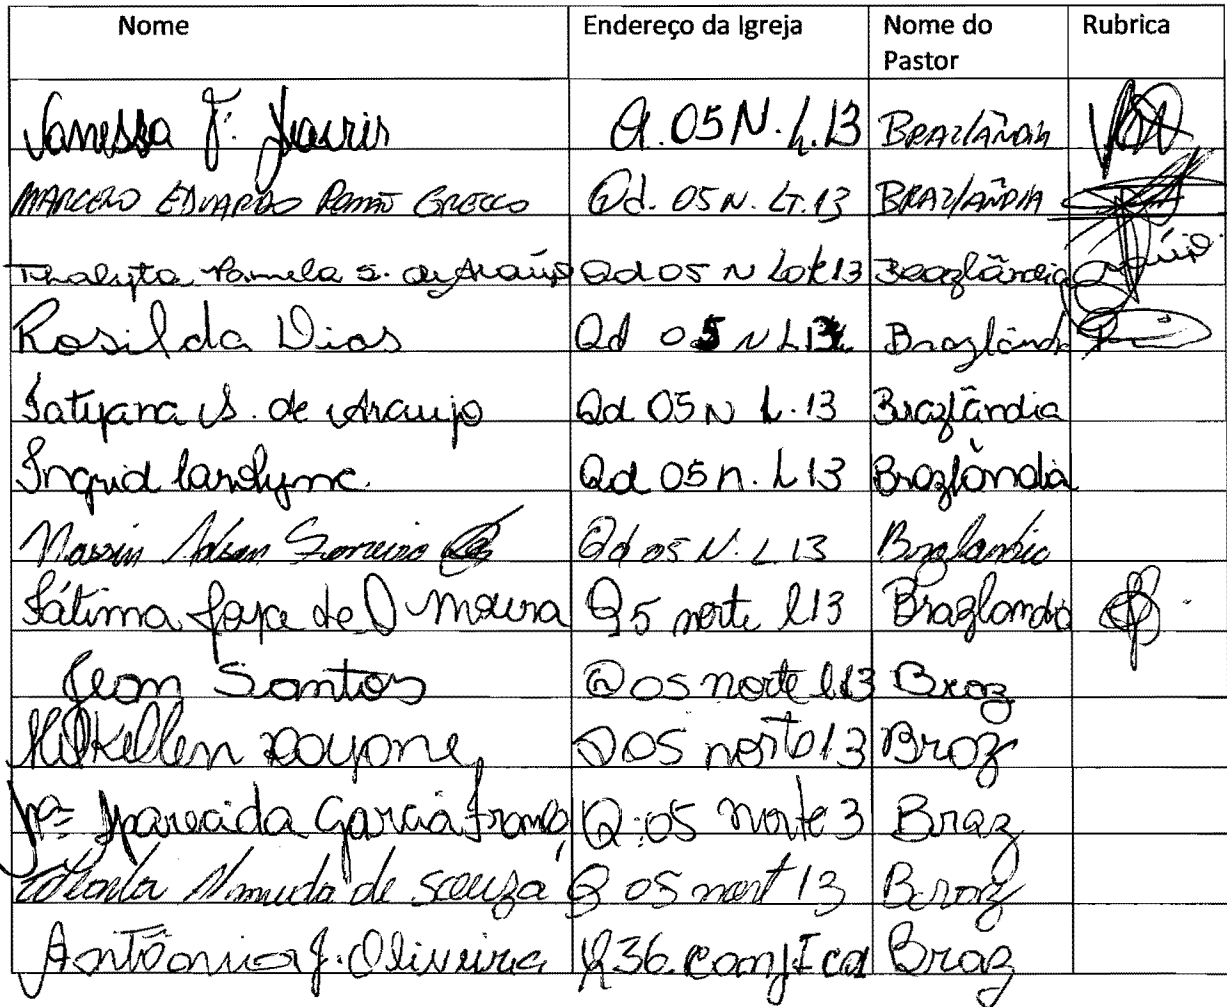 Nome Endereço da Igreja Nome do Pastor Rubrica
Vanessa F. Q. 05 N. L. 13 BRAZLÂNDIA
MARCELO EDUARDO GRECCO Qd. 05 N. LT. 13 BRAZLÂNDIA
Thalyta Pamela S. de Araújo Qd 05 N Lote 13 Brazlândia
Rosilda Dias Qd 05 N L 13 Brazlândia
Tatyana S. de Araujo Qd 05 N L. 13 Brazlândia
Ingrid Carolyne. Qd 05 n. L 13 Brazlândia
Qd 05 N. L 13 Brazlandia
Fátima de O moura Q 5 norte l 13 Brazlandia
Jean Santos Q 05 norte l 13 Braz
Q 05 norte 13 Braz
Mª Aparecida Garcia Q: 05 norte 3 Braz
Almeida de Souza Q 05 nort 13 Braz
Antônio J. Oliveira Q 36. Braz